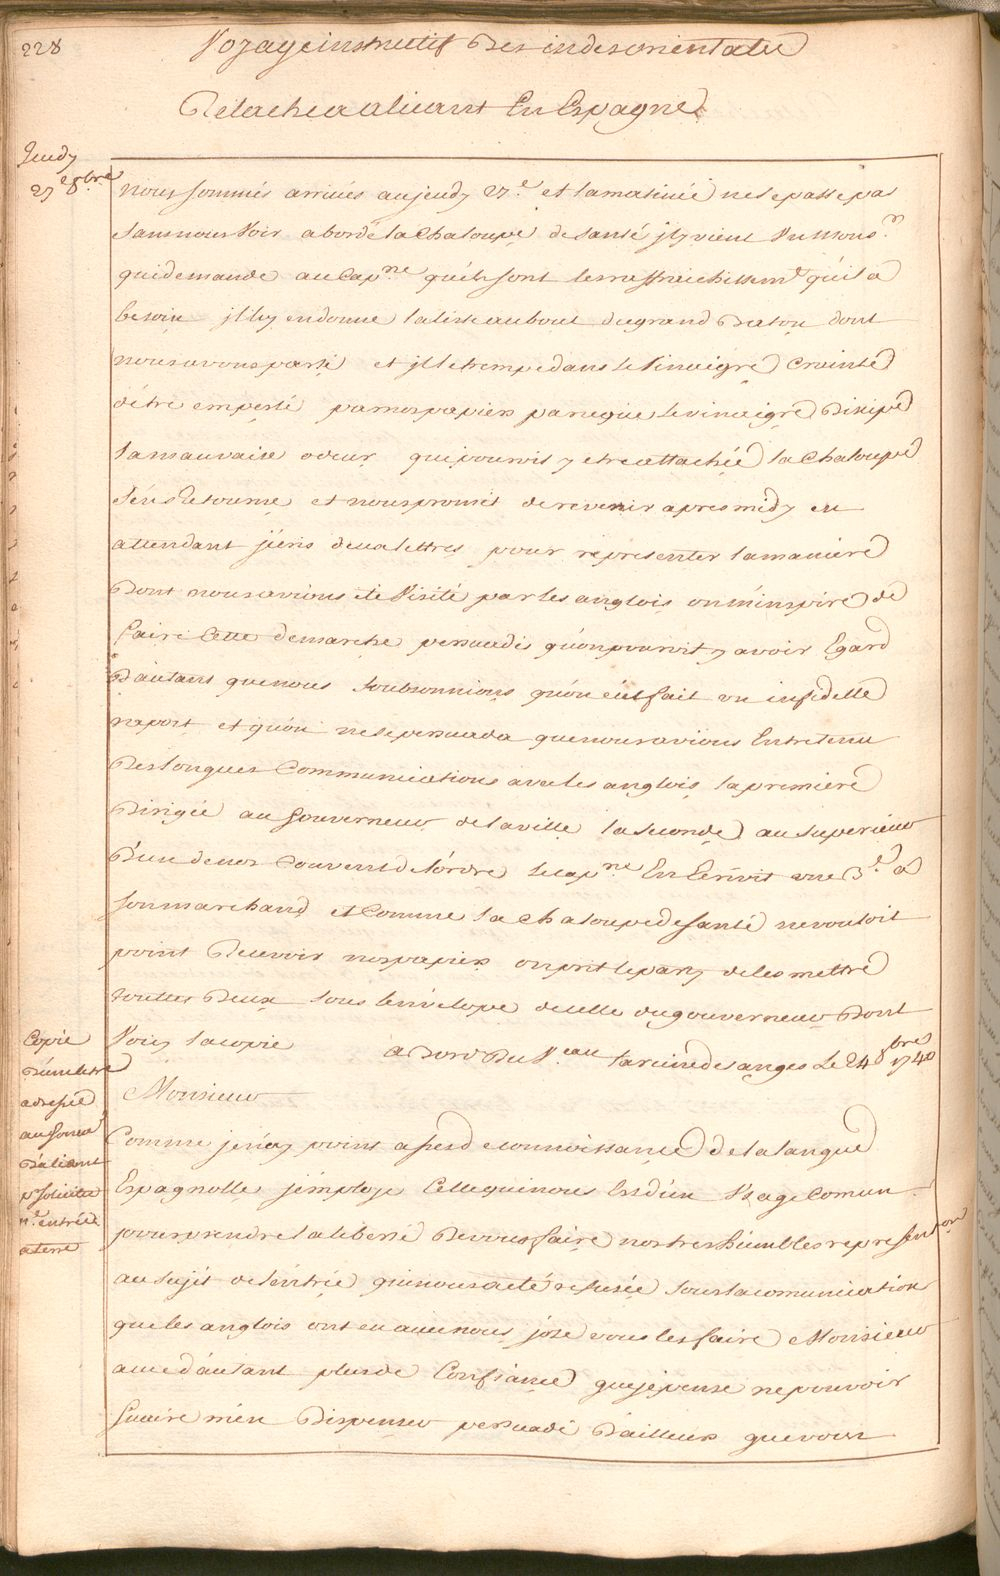 228
Voyage instructif Des indes orientalle
Relache a alicant En Espagne
Jeudy
27 8bre
nous sommes arrivés aujeudy 27e et la matinée ne se passe pas
sans nous voir abordé la chaloupe de santé jl y vient un Monsr
qui demande au Capne quels sont les raffraichissemt qu'il a
besoin jl luy en donne la liste au bout du grand Baton dont
nous avons parlé et jl le trempe dans le Vinaigre Crainte
d'étre empesté par nos papiers parceque le vinaigre Disipe
la mauvaise odeur qui pouroit y etre attachée la Chaloupe
s'en Retourne et nous promit de revenir apres midy en
attendant j'ecris deux lettres pour representer la maniere
Dont nous avions été Visité par les anglois on m'inspire de
faire Cette demarche persuadés qu'on pouroit y avoir Egard
D'autant que nous soubsonnions qu'on eut fait un infidelle
raport et qu'on ne se persuada que nous avions Entretenu
Des longues Communications avec les anglois la premiere
Dirigée au Gouverneur de la ville la seconde au superieur
D'un de nos Couvent de l'ordre le capne En Ecrivit une 3e a
son marchand et Comme la chaloupe de santé ne vouloit
point Recevoir nos papiers on prit le party de les mettre
toutes Deux sous l'envelope de celle du gouverneur Dont
Voicy la copie a Bord Du Veau la reine des anges Le 24 8bre 1740
Copie
D'une lettre
adressée
au Gouvr
D'alicant
pr soliciter
n.e entrée
a terre
Monsieur
Comme je n'ay point assesd econnoissance de la langue
Espagnolle j'employe Celle qui nous Est d'un Usage Comun
pour prendre la liberté De vous faire nos tres humbles representon
au sujet de l'entrée qui nous a eté refusée sous la comunication
que les anglois ont eu avec nous j'ose vous les faire Monsieur
avec d'autant plus de Confiance que je pense ne pouvoir
Guaire m'en Dispenser persuadé D'ailleurs que vous